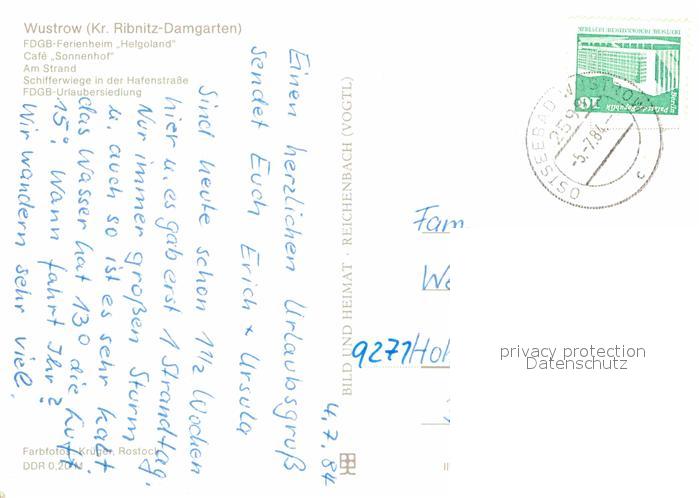 Wustrow (Kr. Ribnitz-Damgarten)
FDGB-Ferienheim „Helgoland"
Café „Sonnenhof"
Am Strand
Schifferwiege in der Hafenstraße
FDGB-Urlaubersiedlung
Einen herzlichen Urlaubsgruß
sendet Euch Erich + Ursula
Sind heute schon 1 1/2 Wochen
hier u. es gab erst 1 Strandtag.
Nur immer großen Sturm
u. auch so ist es sehr kalt.
das Wasser hat 13° die Luft
15°. Wann fahrt Ihr?
Wir wandern sehr viel.
4.7.84
Farbfotos: Krüger, Rostock
DDR 0,20 M
BILD UND HEIMAT · REICHENBACH (VOGTL)
DEUTSCHE DEMOKRATISCHE REPUBLIK
Berlin
Palast der Republik
10
OSTSEEBAD WUSTROW
2598
-5.-7.84
c
Fam
We
9271 Hoh
privacy protection
Datenschutz